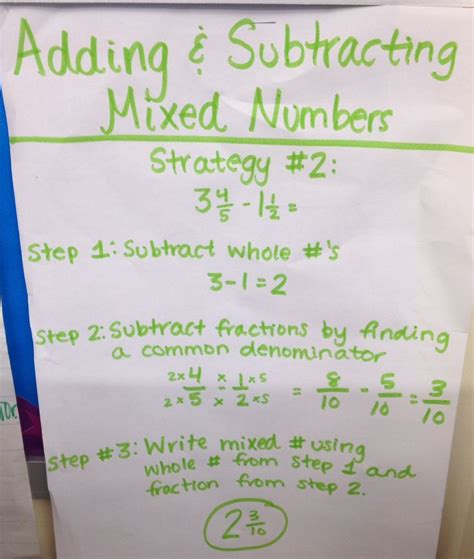 Adding & Subtracting
Mixed Numbers
Strategy #2:
3 4/5 - 1 1/2 =
Step 1: Subtract whole #'s
3-1=2
Step 2: Subtract fractions by finding
a common denominator
2x4/2x5 x/x 1x5/2x5 = 8/10 - 5/10 = 3/10
Step #3: Write mixed # using
whole # from Step 1 and
fraction from step 2.
2 3/10